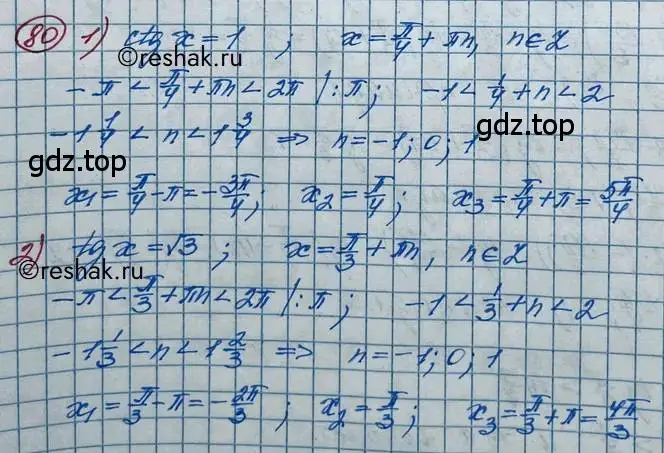 80 1) ctg x = 1 ; x = π/4 + πn, n ∈ Z
©reshak.ru
-π < π/4 + πn < 2π |:π ; -1 < 1/4 + n < 2
-1 1/4 < n < 1 3/4 ⇒ n = -1; 0; 1
gdz.top gdz.top
x₁ = π/4 - π = -3π/4 ; x₂ = π/4 ; x₃ = π/4 + π = 5π/4
2) tg x = √3 ; x = π/3 + πn, n ∈ Z
©reshak.ru
-π < π/3 + πn < 2π |:π ; -1 < 1/3 + n < 2
-1 1/3 < n < 1 2/3 ⇒ n = -1; 0; 1
x₁ = π/3 - π = -2π/3 ; x₂ = π/3 ; x₃ = π/3 + π = 4π/3
gdz.top